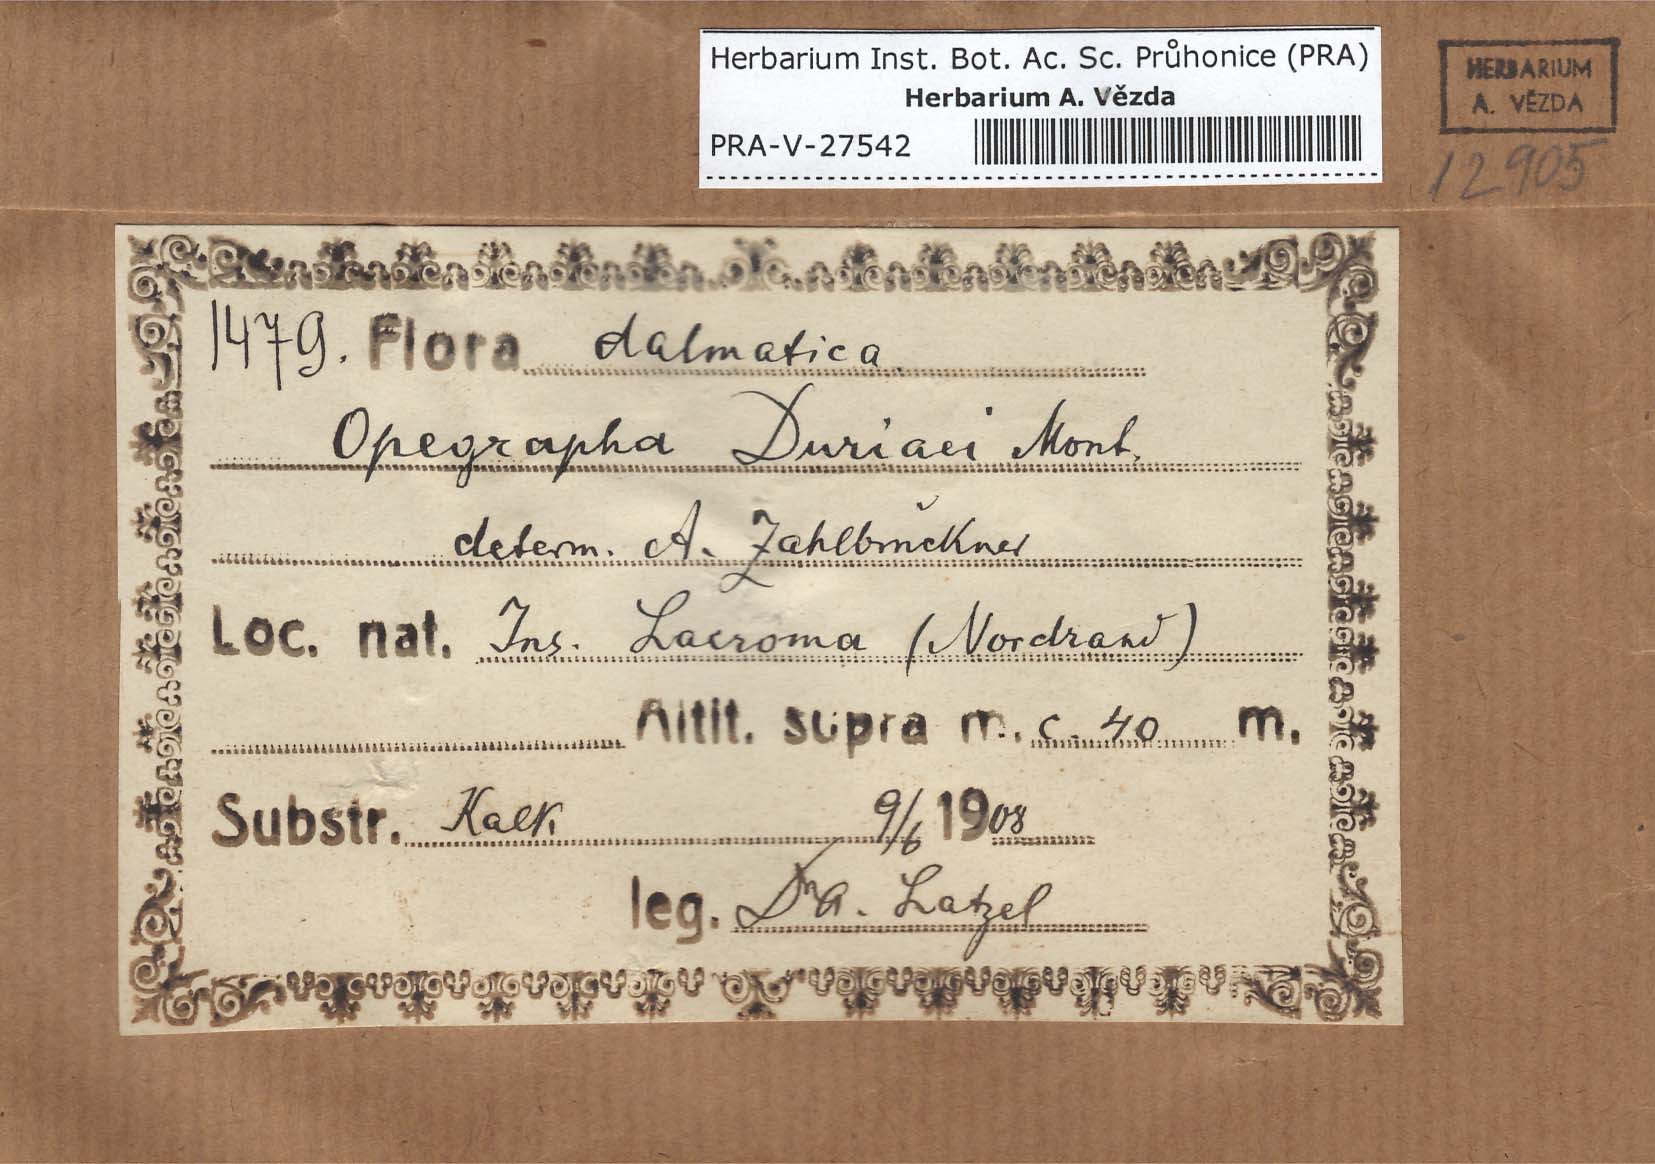 Herbarium Inst. Bot. Ac. Sc. Průhonice (PRA)
Herbarium A. Vězda
PRA-V-27542
HERBARIUM
A. VĚZDA
12905
1479. Flora dalmatica
Opegrapha Duriaei Mont.
determ. A. Zahlbruckner
Loc. nat. Ins. Lacroma (Nordrand)
Altit. supra m. c. 40 m.
Substr. Kalk 9/6 1908
leg. Dr A. Latzel